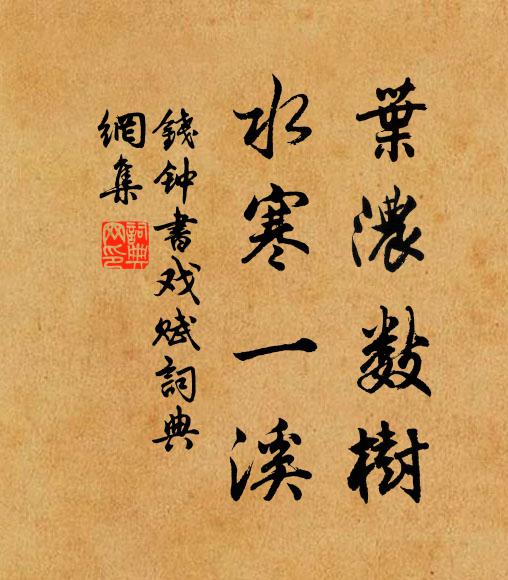 葉濃數樹
水寒一溪
錢钟書戏赋詞典
網集
詞典
网印